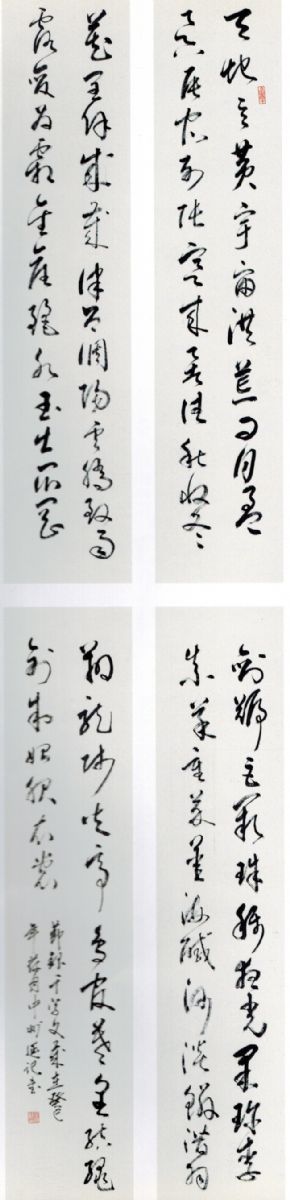 天地玄黃宇宙洪荒日月盈
昃辰宿列張寒來暑往秋收冬
藏閏餘成歲律呂調陽雲騰致雨
露結為霜金生麗水玉出崑岡
劍號巨闕珠稱夜光果珍李
柰菜重芥薑海鹹河淡鱗潛羽
翔龍師火帝鳥官
服衣裳
節錄千字文歲在癸巳
年中州書